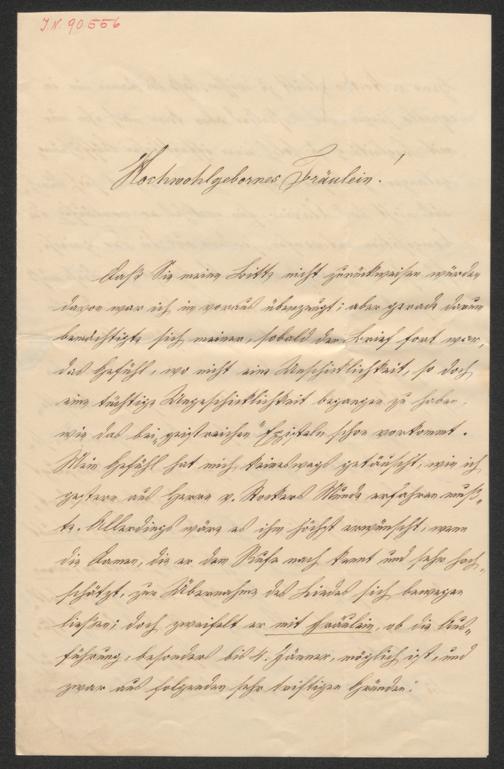 I.N. 90556
Hochwohlgebornes Fräulein!
Daß Sie meine Bitte nicht zurückweisen würden
davon war ich im voraus überzeugt; aber gerade darum
bemächtigte sich meiner, sobald der Brief fort war,
das Gefühl, wo nicht eine Unschicklichkeit, so doch
eine tüchtige Ungeschicklichkeit begangen zu haben,
wie das bei „geistreichen“ Episteln schon vorkommt.
Mein Gefühl hat mich keineswegs getäuscht, wie ich
gestern aus Herrn v. Munde erfahren muß-
te. Allerdings wäre es ihm höchst erwünscht, wenn
die Damen, die er dem Rufe nach kennt und sehr hoch-
schätzt, zur Übernahme des Liedes sich bewegen
ließen; doch zweifelt er mit Fräulein, ob die Aus-
führung, besonders bis 4. Jänner, möglich ist, und
zwar aus folgenden sehr triftigen Gründen: